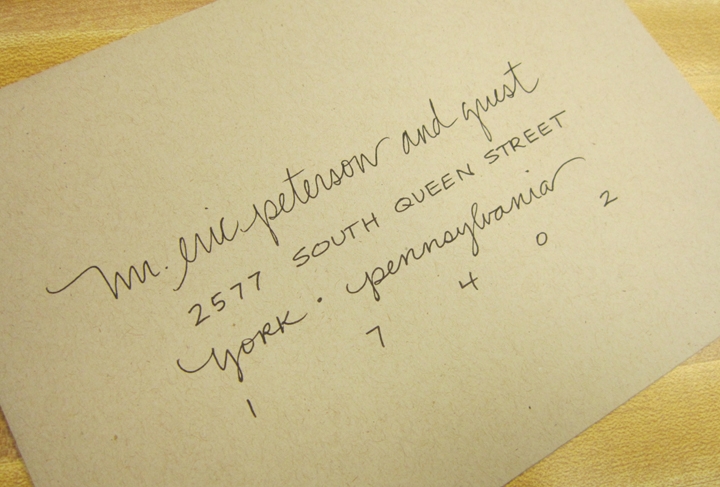 mr. eric peterson and guest
2577 SOUTH QUEEN STREET
york · pennsylvania
1 7 4 0 2